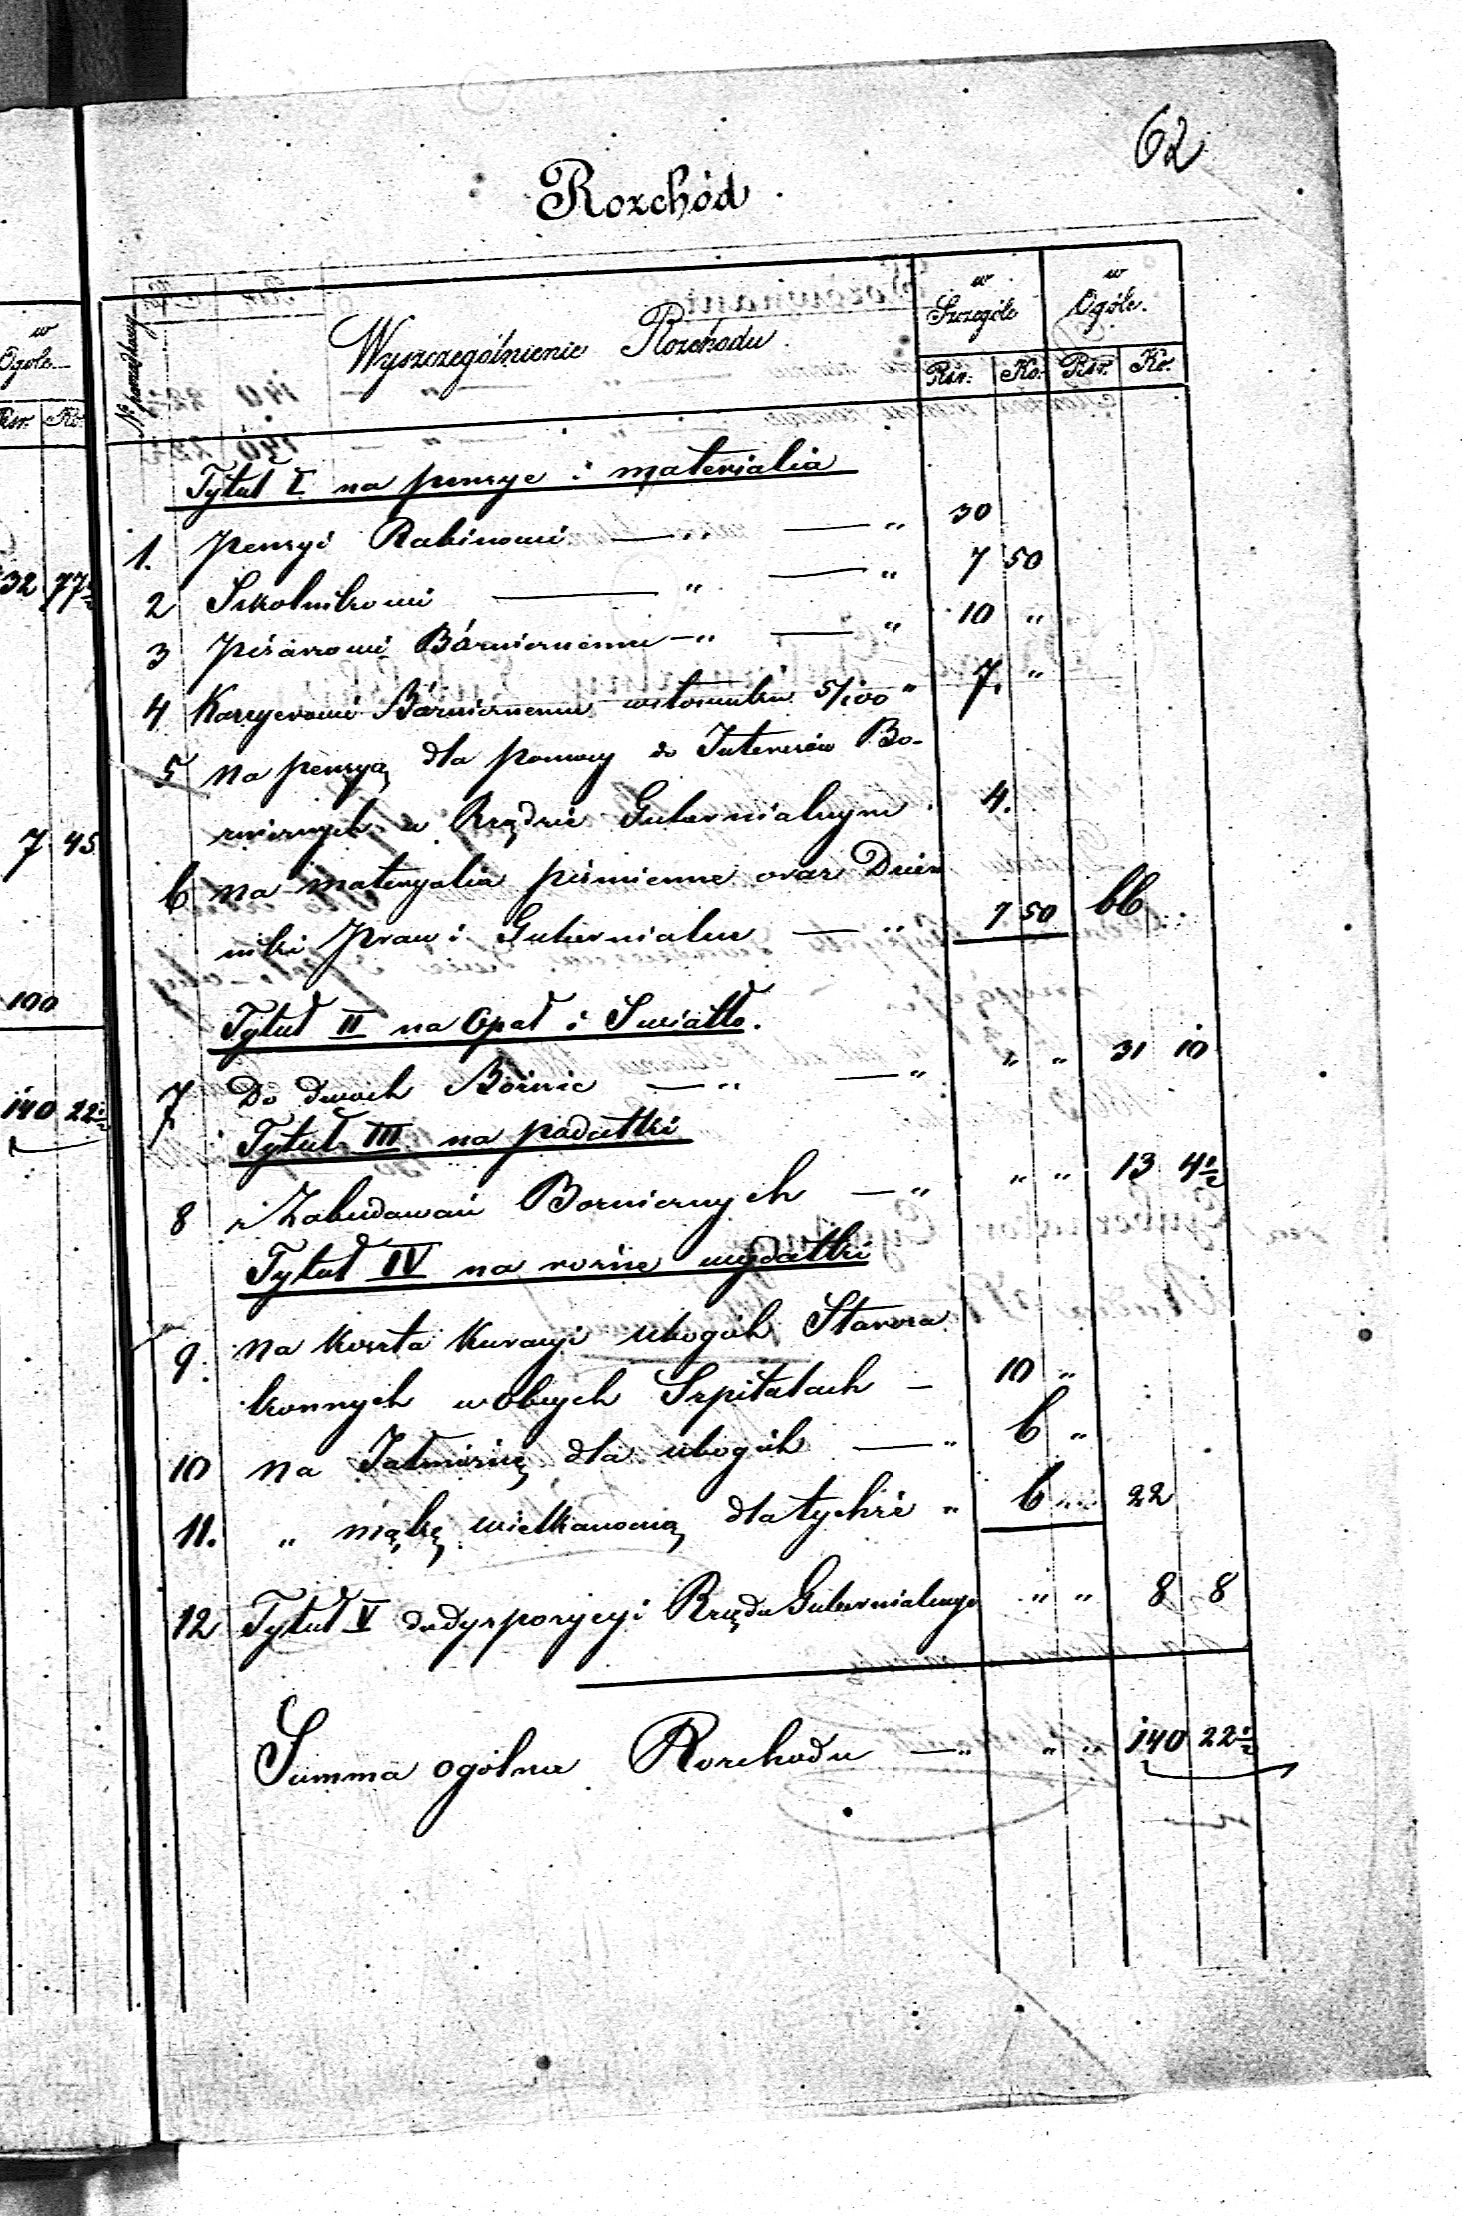 62
Rozchód
w
Ogóle
Rsr. Ko.
32 77½
7 45
100
140 22½
№ porządkowy
Wyszczególnienie Rozchodu.
w Szczególe
w Ogóle.
Rsr. Ko. Rsr. Ko.
Tytuł I na pensye i materialia
1. Pensyi Rabinowi — " — " 30
2 Szkolnikowi — " — " 7 50
3 Pisarzowi Bóżniczemu — " — " 10 "
4 Kassyerowi Bóżniczemu w stosunku 5/100 " 7. "
5 Na pensyą dla pomocy do Interesów Bo-
żniczych w Rządzie Gubernialnym 4.
6 na materyalia piśmienne oraz Dzien
niki Praw i Gubernialne — " 7 50 66
Tytuł II na Opał i Swiatło.
7 Do dwóch Bóżnic — " — " " " 31 10
Tytuł III na podatki
8 z Zabudowań Bożniczych — " " " 13 4½
Tytuł IV na rożne wydatki
9. na koszta kuracyi ubogich Staroza
konnych w obcych Szpitalach — 10 "
10 na Jałmużnę dla ubogich — " 6 "
11. " mąkę wielkanocną dla tychże " 6 " 22
12 Tytuł V do dyspozycyi Rządu Gubernialnego " " 8 8
Summa ogólna Rozchodu — " " " 140 22½